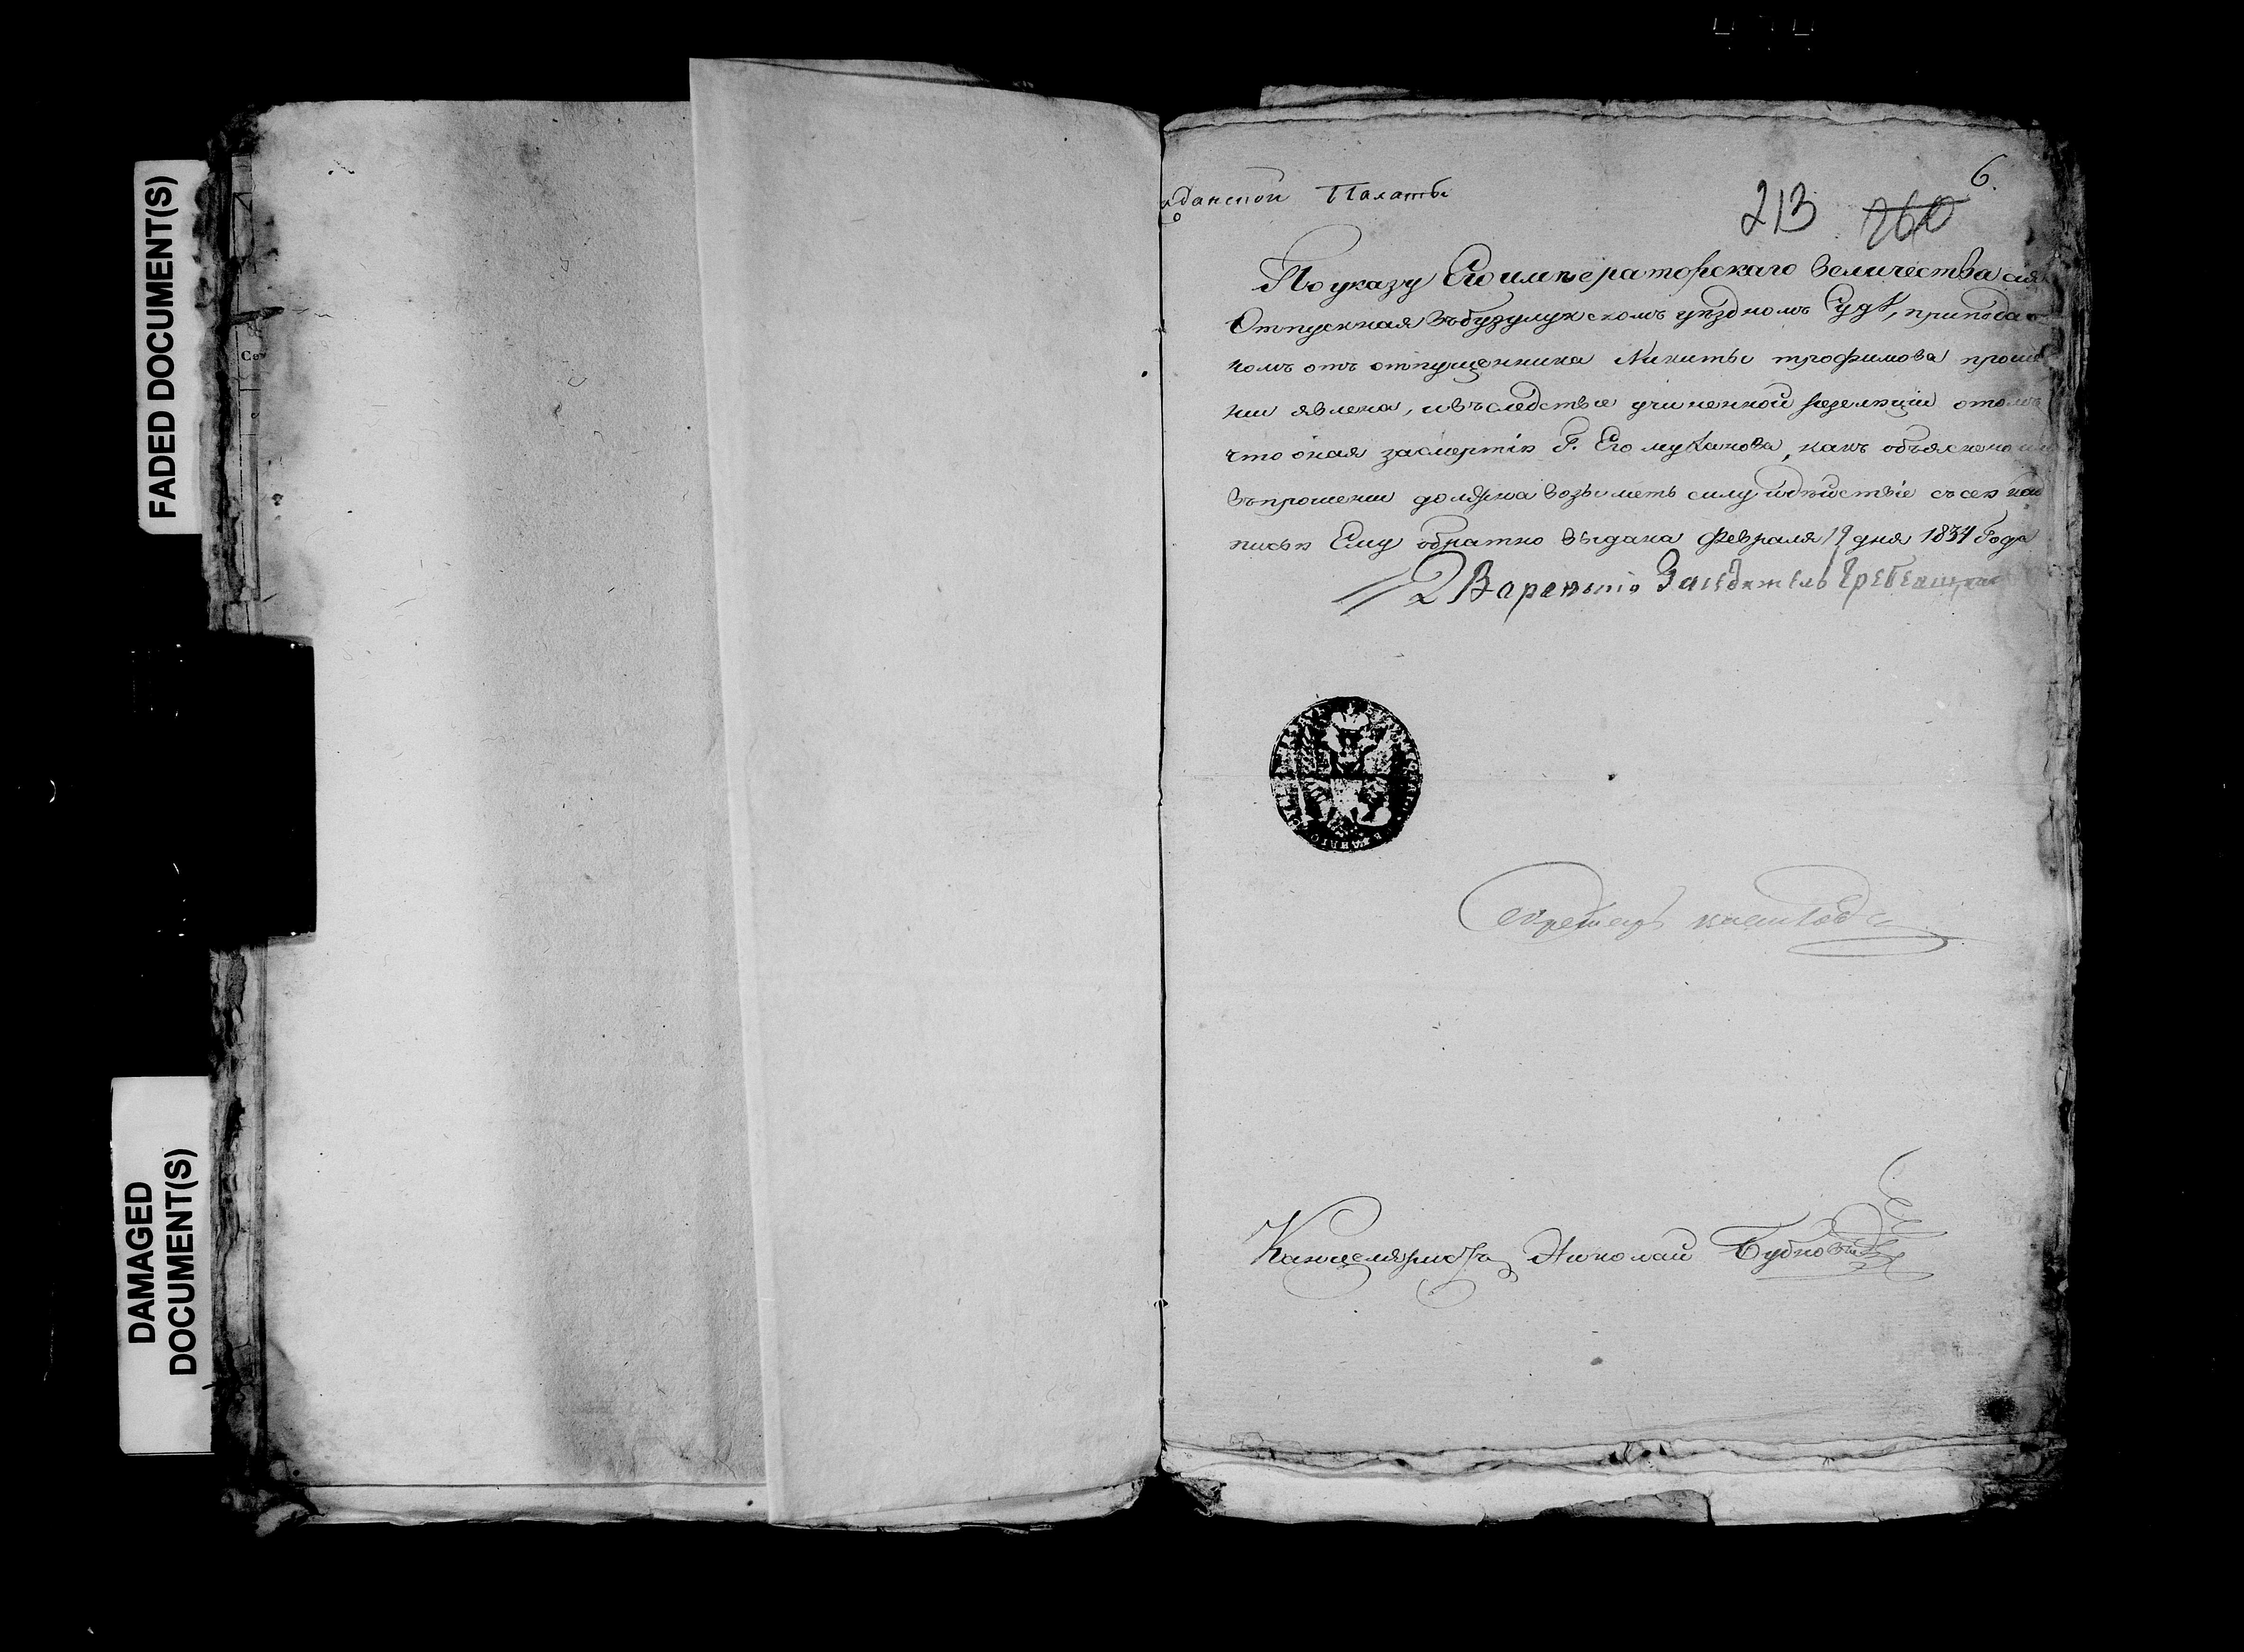 FADED DOCUMENT(S)
DAMAGED
DOCUMENT(S)
6.
данской Палаты
213 260
По указу Его императорскаго величества сия
Отпускная въ бузулукскомъ уѣздномъ Судѣ, при подан
номъ отъ отпущенника Никиты трофимова проше
нии явлена, и въ следствие учиненной резолюции отомъ
что оная засмертію Г. Егомуханова, какъ объяснено
въ прошении должна возъиметь силу идѣйствіе съ сею над
писью Ему обратно выдана февраля 19 дня 1834 года
Дворянскій Заседатель
Секретарь
Канцеляристъ Николай